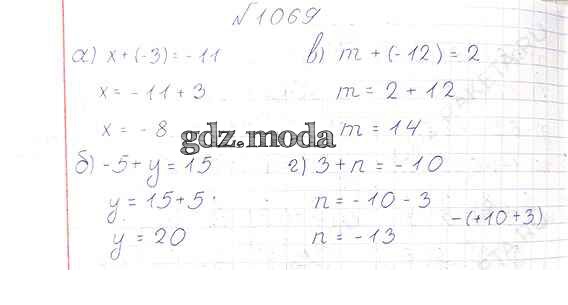 №1069
а) x + (-3) = -11
x = -11 + 3
x = -8
б) -5 + y = 15
y = 15 + 5
y = 20
в) m + (-12) = 2
m = 2 + 12
m = 14
г) 3 + n = -10
n = -10 - 3
-(+10+3)
n = -13
gdz.moda